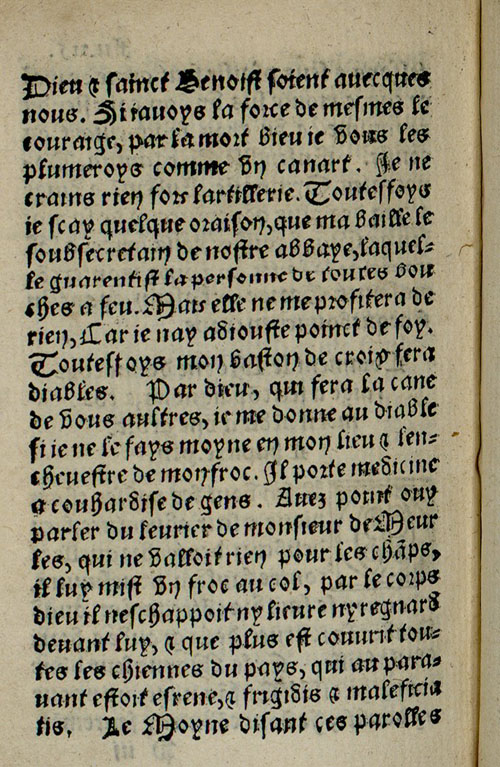 Dieu & sainct Benoist soient avecques
nous. Si iauoys la force de mesmes le
couraige, par la mort bieu ie vous les
plumeroys comme vn canart. Je ne
crains rien fors lartillerie. Toutesfoys
ie scay quelque oraison, que ma baille le
soubsecretain de nostre abbaye, laquel-
le guarentist la personne de toutes bou
ches a feu. Mais elle ne me profitera de
rien, Car ie nay adiouste poinct de foy.
Toutesfoys mon baston de croix fera
diables. Par dieu, qui fera la cane
de vous aultres, ie me donne au diable
si ie ne le fays moyne en mon lieu & len-
cheuestre de mon froc. Il porte medicine
a couhardise de gens. Auez point ouy
parler du leurier de monsieur de Meur
les, qui ne valloit rien pour les chãps,
il luy mist vn froc au col, par le corps
dieu il neschappoit ny lieure ny regnard
deuant luy, & que plus est couurit tou-
tes les chiennes du pays, qui au para-
uant estoit esrene, & frigidis & maleficia
tis. Le Moyne disant ces parolles